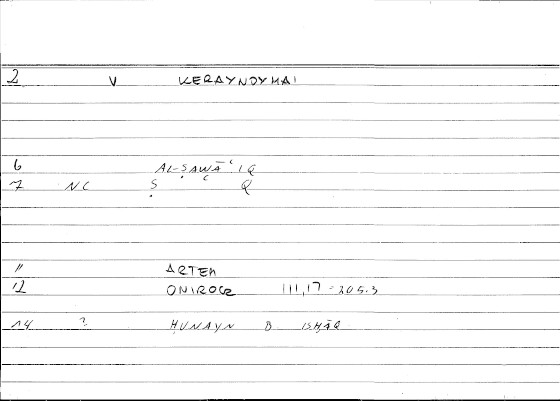 2 V KERAYNOYMAI
6 AL-ṢAWĀʿIQ
7 NC Ṣ ʿ Q
11 ARTEM
12 ONIROCR III,17 = 205.3
14 ? ḤUNAYN B ISḤĀQ